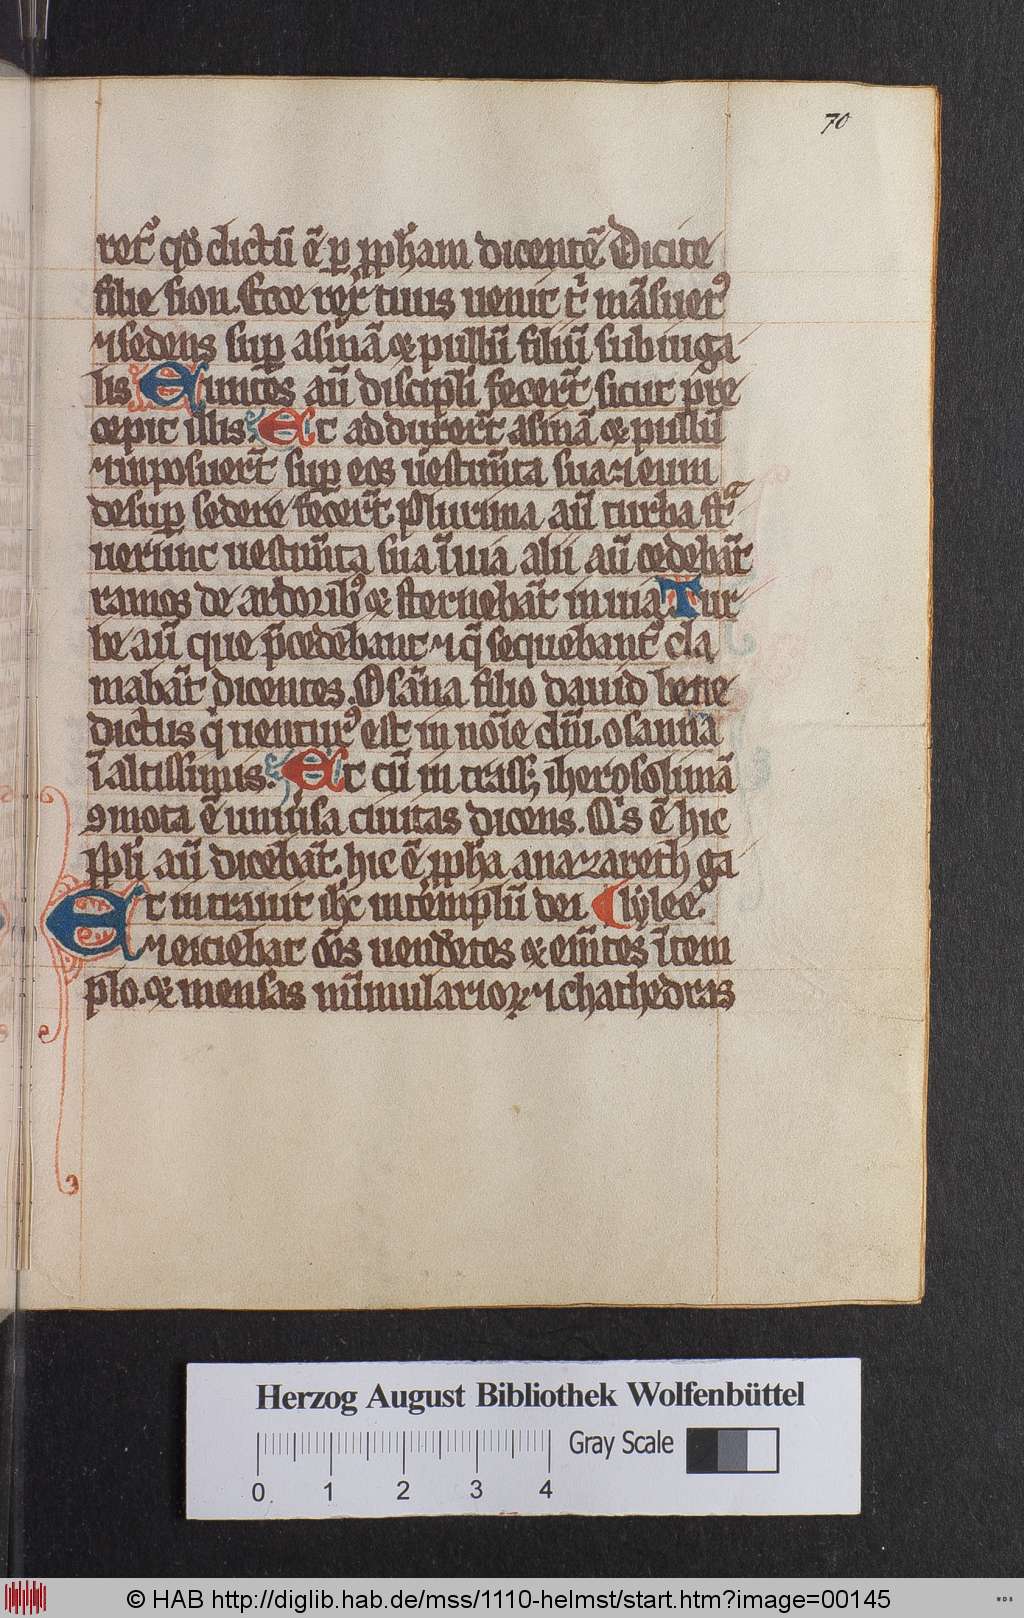 70
ret᷑ qd̄ dictū ē ꝑ ꝓph̄am dicentē Dicite
filie sion. Ecce rex tuus uenit t̄ māsuetꝰ
⁊ sedens suꝑ asinā et pullū filiū subiuga
lis Euntes aū discipl̄i fecer̄t sicut pre
cepit illis. Et adduxer̄t asinā et pullū
⁊ inposuer̄t suꝑ eos uestim̄ta sua ⁊ eum
desuꝑ sedere fecer̄t. Plurima aū turba stᷓ
uerunt uestim̄ta sua ī uia alii aū cedebāt
ramos de arboribꝰ et sternebāt in uia. Tur
be aū que p̄cedebant ⁊ q̄ sequebant᷑ cla
mabāt dicentes. Osāna filio dauid bene
dictus q̄ uenturꝰ est in noīe dn̄i. osanna
ī altissimis. Et cū intrass; iherosolimā
ꝯmota ē uniūsa ciuitas dicens. Q̄s ē hic
ppl̄i aū dicebāt. hic ē ꝓph̄a a nazareth ga
Et intrauit ih̄c in templū dei. lylee.
⁊ eiciebat om̄s uendētes et em̄tes ī tem
plo. et mensas nūmulariorꝝ ⁊ chathedras
Herzog August Bibliothek Wolfenbüttel
Gray Scale
0 1 2 3 4
© HAB http://diglib.hab.de/mss/1110-helmst/start.htm?image=00145